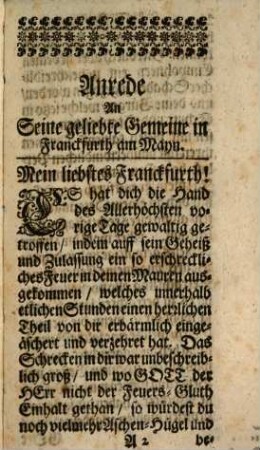 Anrede
An
Seine geliebte Gemeine in
Franckfurth am Mayn.
Mein liebstes Franckfurth!
ES hat dich die Hand
des Allerhöchsten vo-
rige Tage gewaltig ge-
troffen / indem auff sein Geheiß
und Zulassung ein so erschreckli-
ches Feuer in deinen Mauren aus-
gekommen / welches innerhalb
etlichen Stunden einen herrlichen
Theil von dir erbärmlich einge-
äschert und verzehret hat. Das
Schrecken in dir war unbeschreib-
lich groß / und wo GOTT der
HErr nicht der Feuers-Gluth
Einhalt gethan / so würdest du
noch vielmehr Aschen-Hügel und
A 2 be-